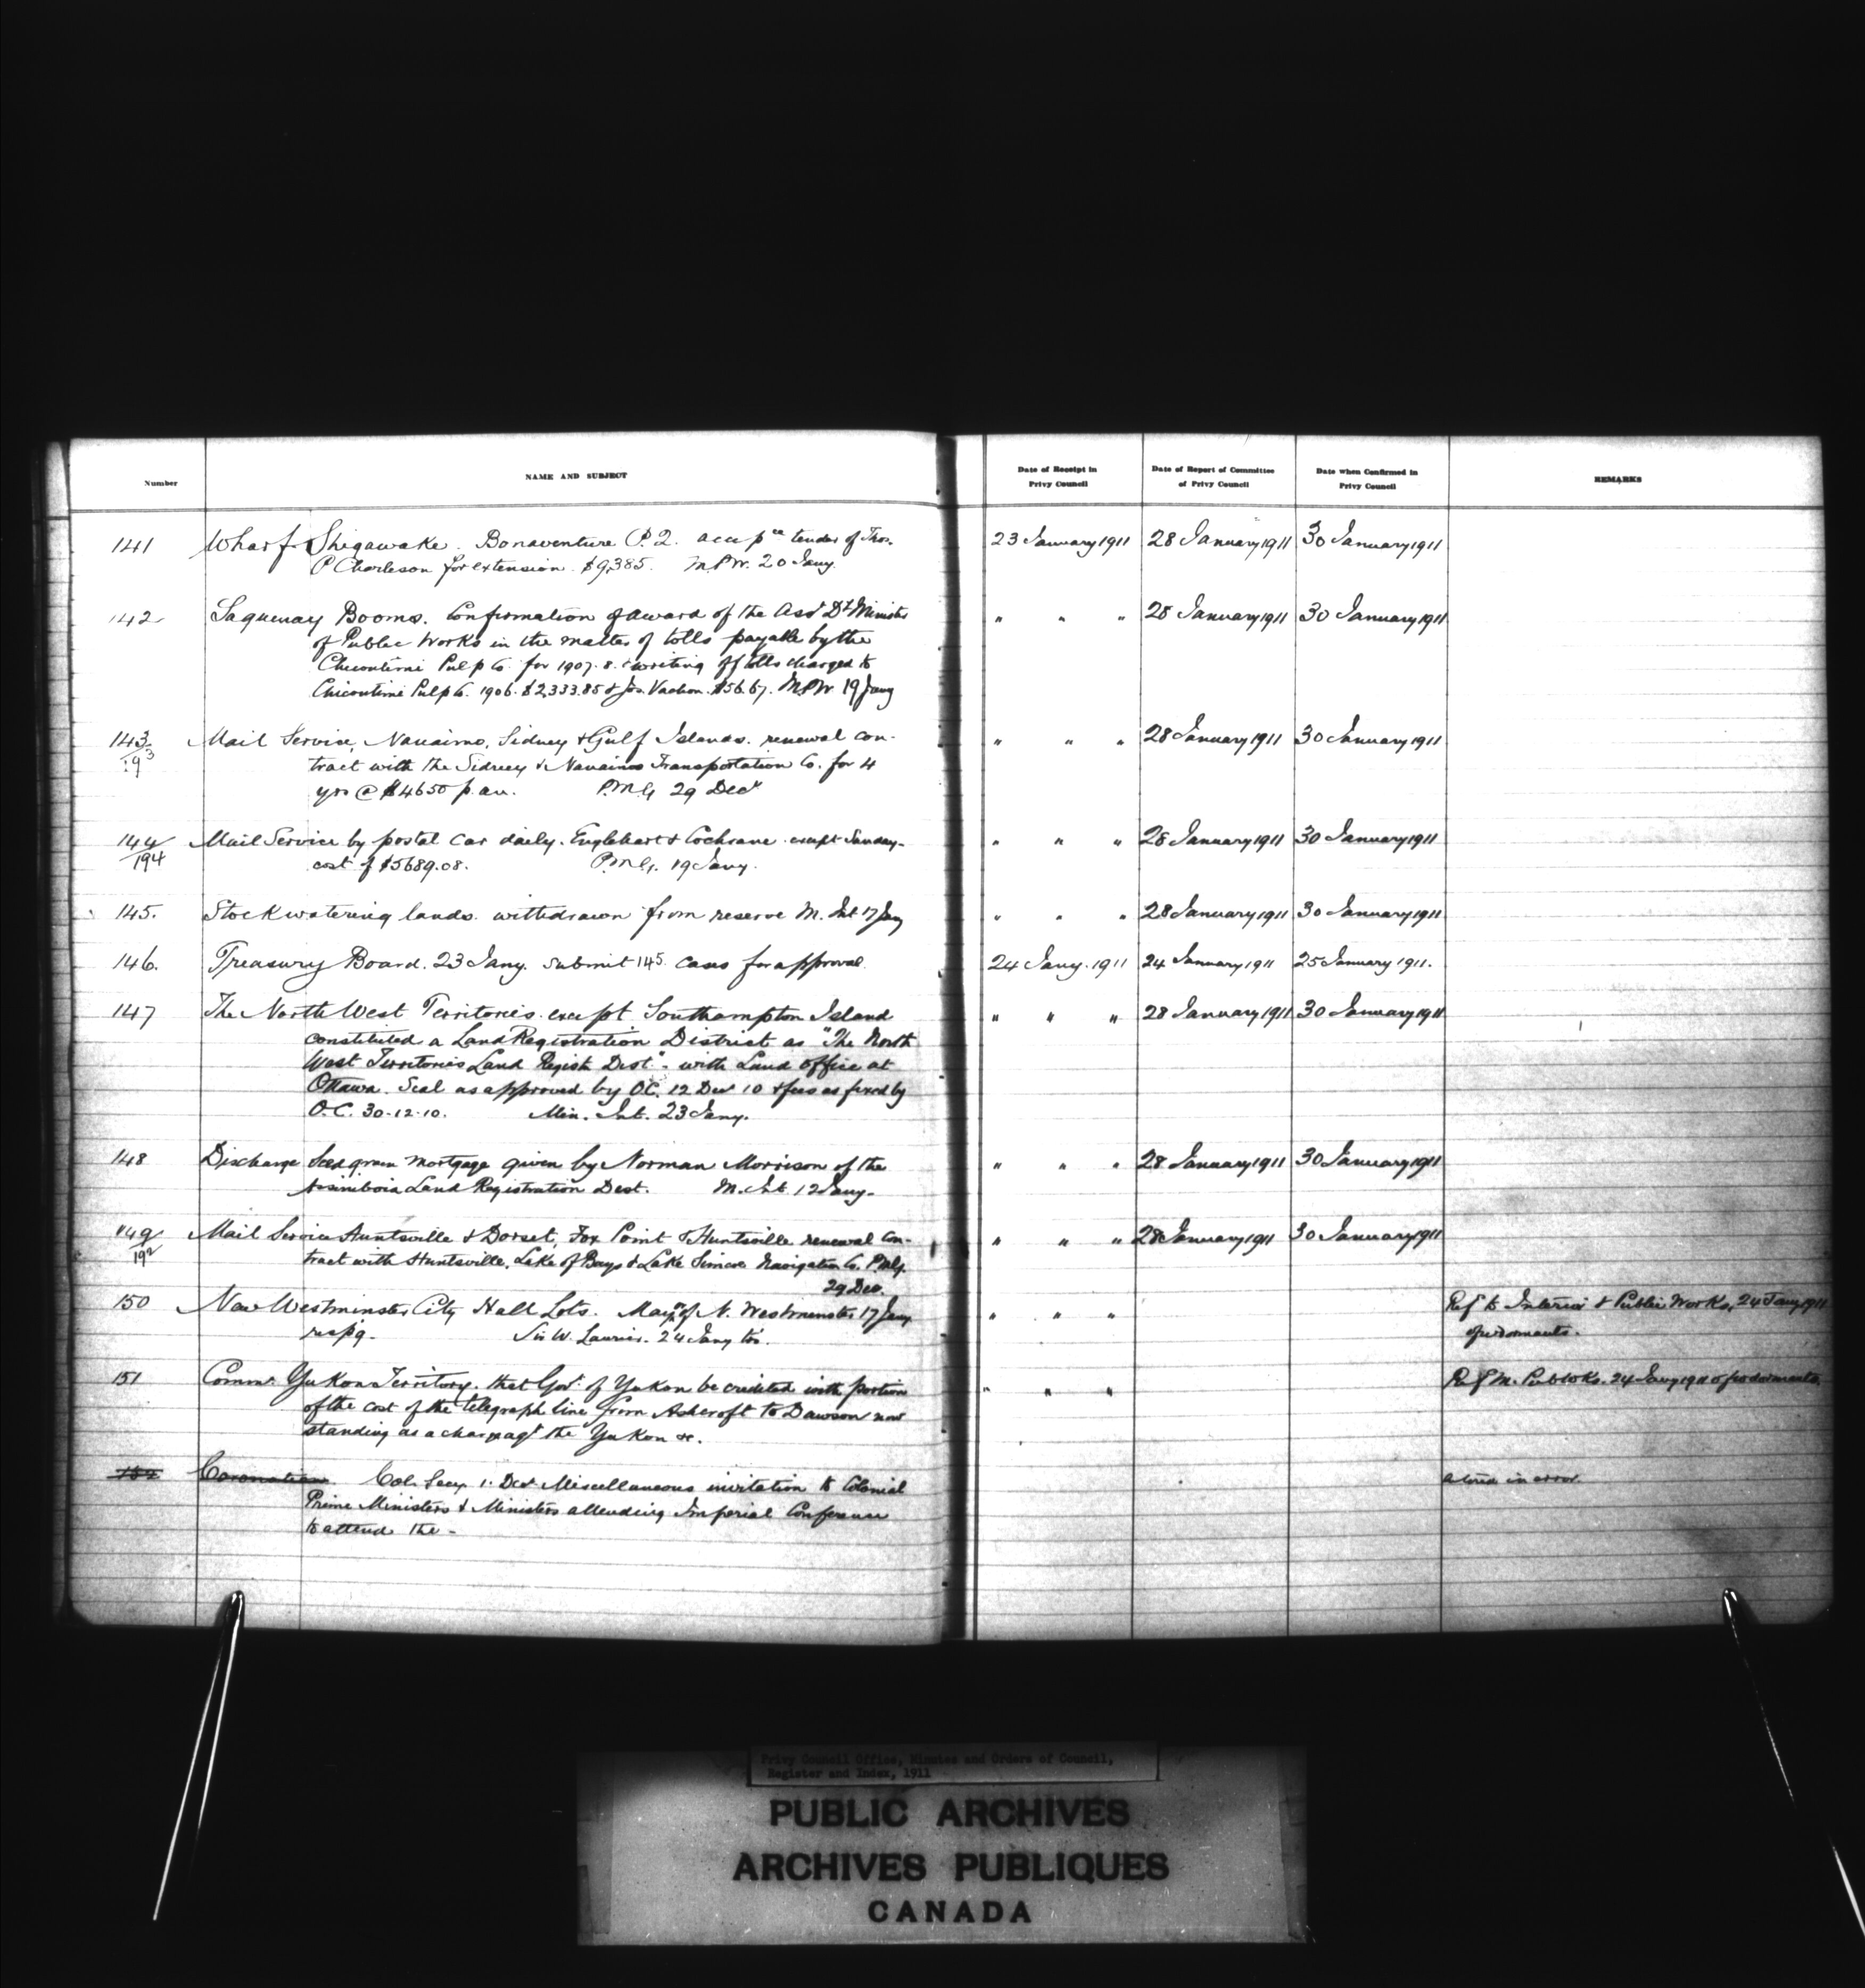 Number
NAME AND SUBJECT
Date of Receipt in Privy Council
Date of Report of Committee of Privy Council
Date when Confirmed in Privy Council
REMARKS
141 Wharf Shigawake. Bonaventure P.Q. tender of Thos. 23 January 1911 28 January 1911 30 January 1911
P Charleson for extension. $9,385. M.P.W. 20 Jany.
142 Saguenay Booms. Confirmation of award of the Asst Dt Minister " " " 28 January 1911 30 January 1911
of Public Works in the matter of tolls payable by the
Chicoutimi Pulp Co. for 1907.8. & writing off tolls charged to
Chicoutimi Pulp Co. 1906. $2,333.85 & Jos. Vachon. $56.67. M.P.W. 19 Jany
143 Mail Service, Nanaimo, Sidney & Gulf Islands. renewal con- " " " 28 January 1911 30 January 1911
193 tract with the Sidney & Nanaimo Transportation Co. for 4
yrs @ $4650 p. an. P.M.G. 29 Decr
144 Mail Service by postal car daily. Englehart & Cochrane. except Sunday- " " " 28 January 1911 30 January 1911
194 cost of $5689.08. P.M.G. 19 Jany.
145. Stock watering lands. withdrawn from reserve M. Int 17 Jany " " " 28 January 1911 30 January 1911
146. Treasury Board. 23 Jany. submit 145 cases for approval 24 Jany. 1911 24 January 1911 25 January 1911.
147 The North West Territories except Southampton Island " " " 28 January 1911 30 January 1911
constituted a Land Registration District as "The North
West Territories Land Registn Dist". with Land office at
Ottawa. Seal as approved by O.C. 12 Decr 10 & fees as fixed by
O.C. 30-12-10. Min. Int. 23 Jany.
148 Discharge Seed grain mortgage given by Norman Morrison of the " " " 28 January 1911 30 January 1911
Assiniboia Land Registration Dist. M. Int. 12 Jany.
149 Mail Service Huntsville & Dorset, Fox Point & Huntsville renewal con- " " " 28 January 1911 30 January 1911
192 tract with Huntsville, Lake of Bays & Lake Simcoe Navigation Co. P.M.G.
29 Dec.
150 New Westminster City Hall Lots. Mayor of N. Westminster 17 Jany " " " Ref to Interior & Public Works, 24 Jany 1911
respg. Sir W. Laurier. 24 Jany
151 Commr. Yukon Territory. that Govt. of Yukon be credited with portion " " " Ref M. Pub Wks. 24 Jany 1911
of the cost of the telegraph line from Ashcroft to Dawson now
standing as a charge agt the Yukon &c.
152 Coronation Col. Secy 1. Decr Miscellaneous invitation to Colonial in error
Prime Ministers & Ministers attending Imperial Conference
to attend the -
Privy Council Office, Minutes and Orders of Council,
Register and Index, 1911
PUBLIC ARCHIVES
ARCHIVES PUBLIQUES
CANADA